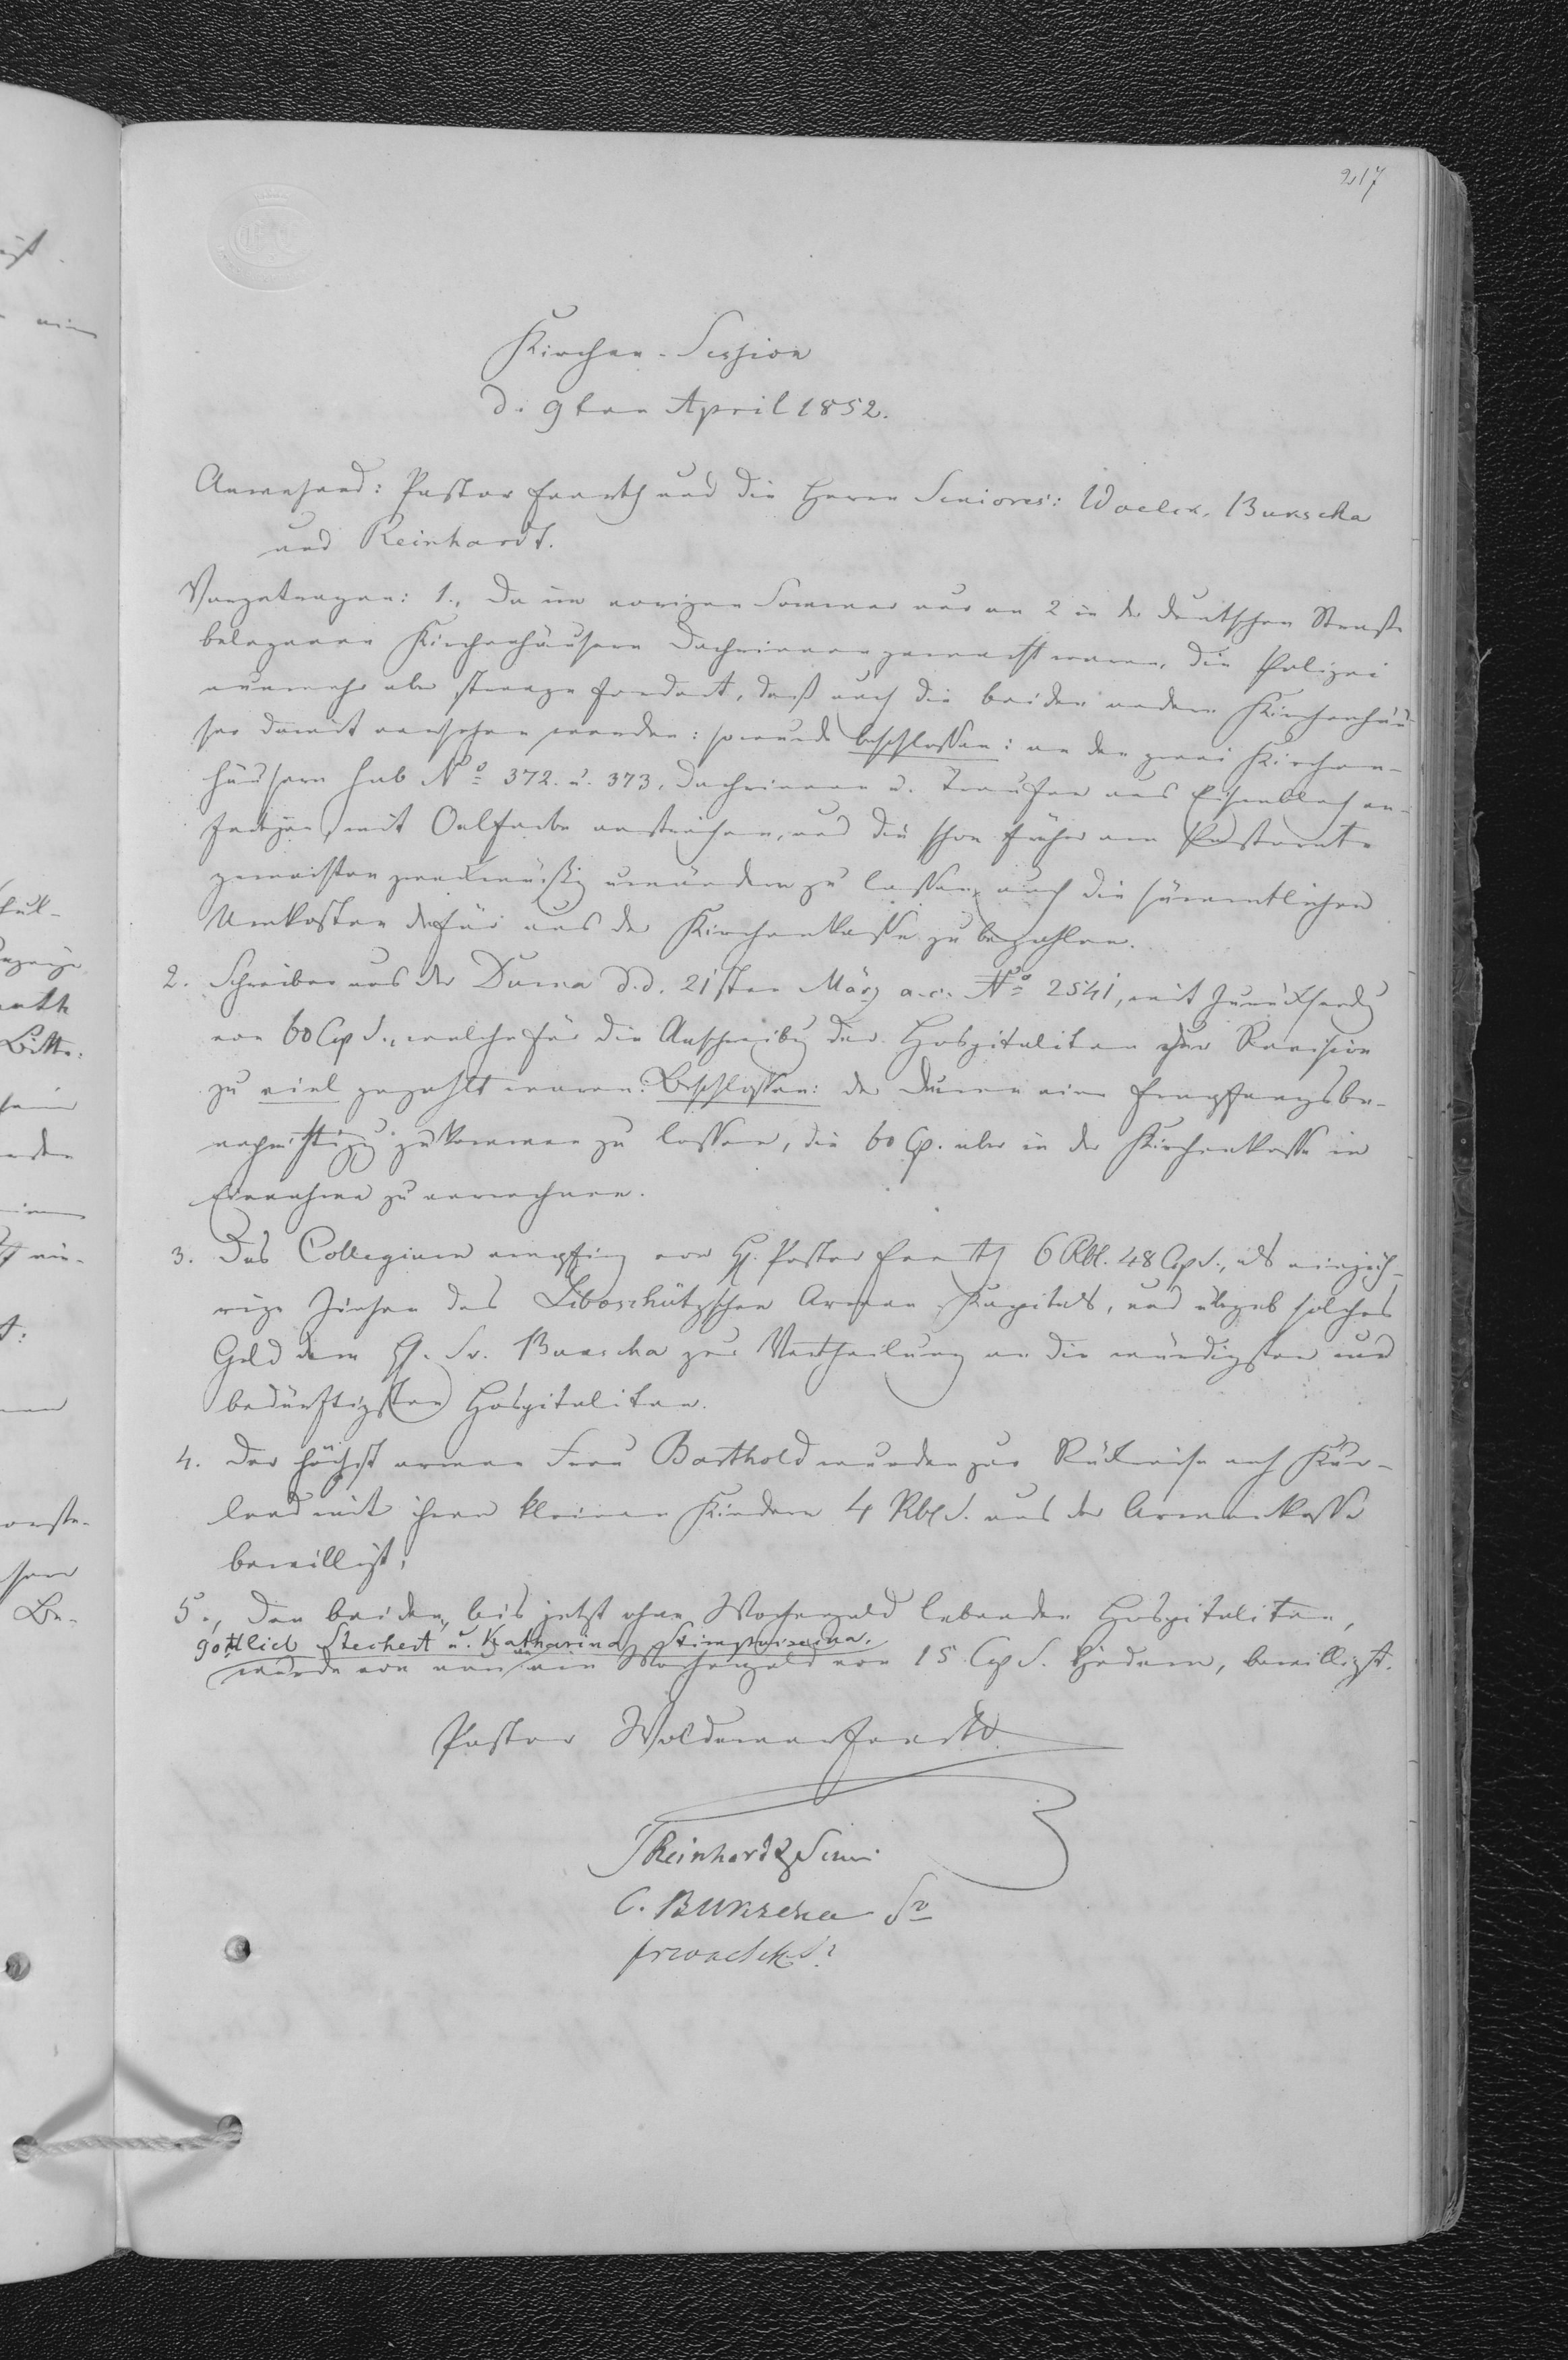 217
Kirchen-Session
d. 9ten April 1852.
Anwesend: Pastor Everth und die Herrn Seniores: Woelck, Bunscha
und Reinhardt.
Vorgetragen: 1., Da im vorigen Sommer nur an 2 in der deutschen Straße
belegenen Kirchenhäusern Dachrinnen gemacht waren, die Polizei
nunmehr aber strenge fordert, daß auch die beiden andern Kirchenhäu-
ser damit versehen werden: so wurde beschlossen: an den zwei Kirchen-
häusern sub No 372. u. 373. Dachrinnen u. Traufen aus Eisenblech an-
fertigen, mit Oelfarbe anstreichen, und die schon früher am Pastorate
gemachten zweckmäßig umändern zu lassen, auch die sämmtlichen
Unkosten dafür aus der Kirchenkasse zu bezahlen.
2. Schreiben aus der Duma d. d. 21sten März a. c. No 2541, mit Zurücksendg
von 60 Cop S., welche für die Anschreibg der Hospitaliten zur Revision
zu viel gezahlt waren. Beschlossen: der Duma eine Empfangsbe-
nachrichtigg zukommen zu lassen, die 60 Cp. aber in der Kirchenkasse in
Einnahme zu verrechnen.
3. Das Collegium empfing von H. Pastor Everth 6 Rbl. 48 Cop S., als einjäh-
rige Zinsen des Liboschützschen Armen Kapitals, und übergab solches
Geld dem H. Sr. Bunscha zur Vertheilung an die würdigsten und
bedürftigsten Hospitaliten.
4. Der höchst armen Frau Barthold wurden zur Rükreise nach Kur-
land mit ihren kleinen Kindern 4 Rbl S. aus der Armenkasse
bewilligt.
5., Den beiden, bis jetzt ohne Wochengeld lebenden Hospitaliten,
Gottlieb Stechert u. Katharina
wurde von nun an ein Wochengeld von 15 Cop S. Jedem, bewilligt.
Pastor Woldemar Everth
Reinhardt Senior
C. Bunscha Sr
Woelck Sr